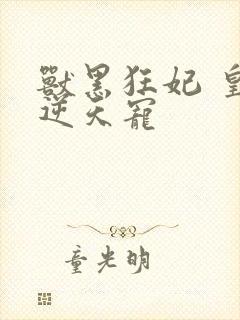 獸黑狂妃 皇
逆天寵
童光明